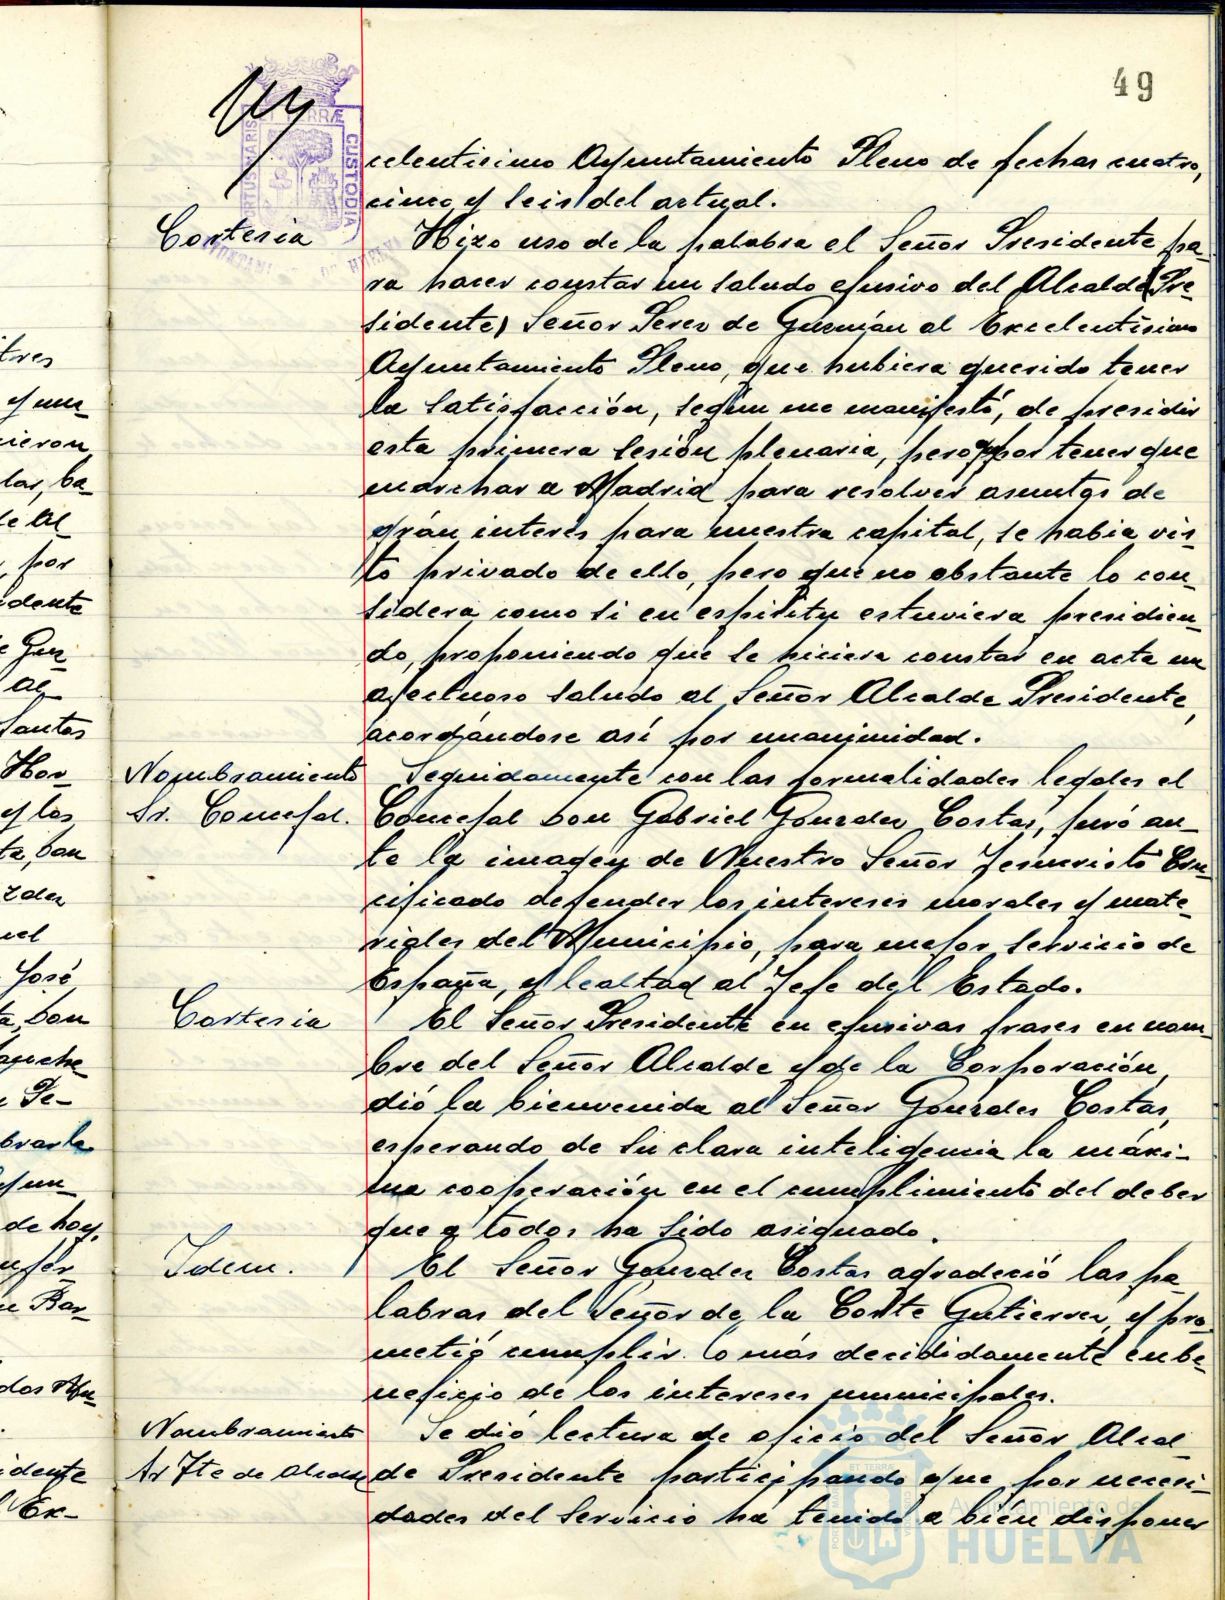 49
PORTUS MARIS ET TERRÆ CUSTODIA
celentisimo Ayuntamiento Pleno de fechas cuatro,
cinco y seis del actual.
Cortesia
Hizo uso de la palabra el Señor Presidente pa-
ra hacer constar un saludo efusivo del Alcalde (Pre-
sidente) Señor Perez de Guzmán al Excelentisimo
Ayuntamiento Pleno, que hubiera querido tener
la satisfacción, según me manifestó, de presidir
esta primera sesión plenaria, pero por tener que
marchar a Madrid para resolver asuntos de
grán interés para nuestra capital, se habia vis-
to privado de ello, pero que no obstante lo con-
sidera como si en espiritu estuviera presidien-
do, proponiendo que se hiciera constar en acta un
afectuoso saludo al Señor Alcalde Presidente,
acordándose así por unanimidad.
Nombramiento
Sr. Concejal.
Seguidamente con las formalidades legales el
Concejal Don Gabriel Gonzalez Costas, juró an-
te la imagen de Nuestro Señor Jesucristo Cru-
cificado defender los intereses morales y mate-
riales del Municipio, para mejor servicio de
España, y lealtad al Jefe del Estado.
Cortesia
El Señor Presidente en efusivas frases en nom-
bre del Señor Alcalde y de la Corporación,
dió la bienvenida al Señor Gonzalez Costas,
esperando de su clara inteligencia la máxi-
ma cooperación en el cumplimiento del deber
que a todos ha sido asignado.
Idem.
El Señor Gonzalez Costas agradeció las pa
labras del Señor de la Corte Gutierrez, y pro
metió cumplir lo más decididamente en be-
neficio de los intereses municipales.
Nombramiento
Sr Tte de Alcalde
Se dió lectura de oficio del Señor Alcal-
de Presidente participando que por necesi-
dades del servicio ha tenido a bien disponer
Ayuntamiento de
HUELVA